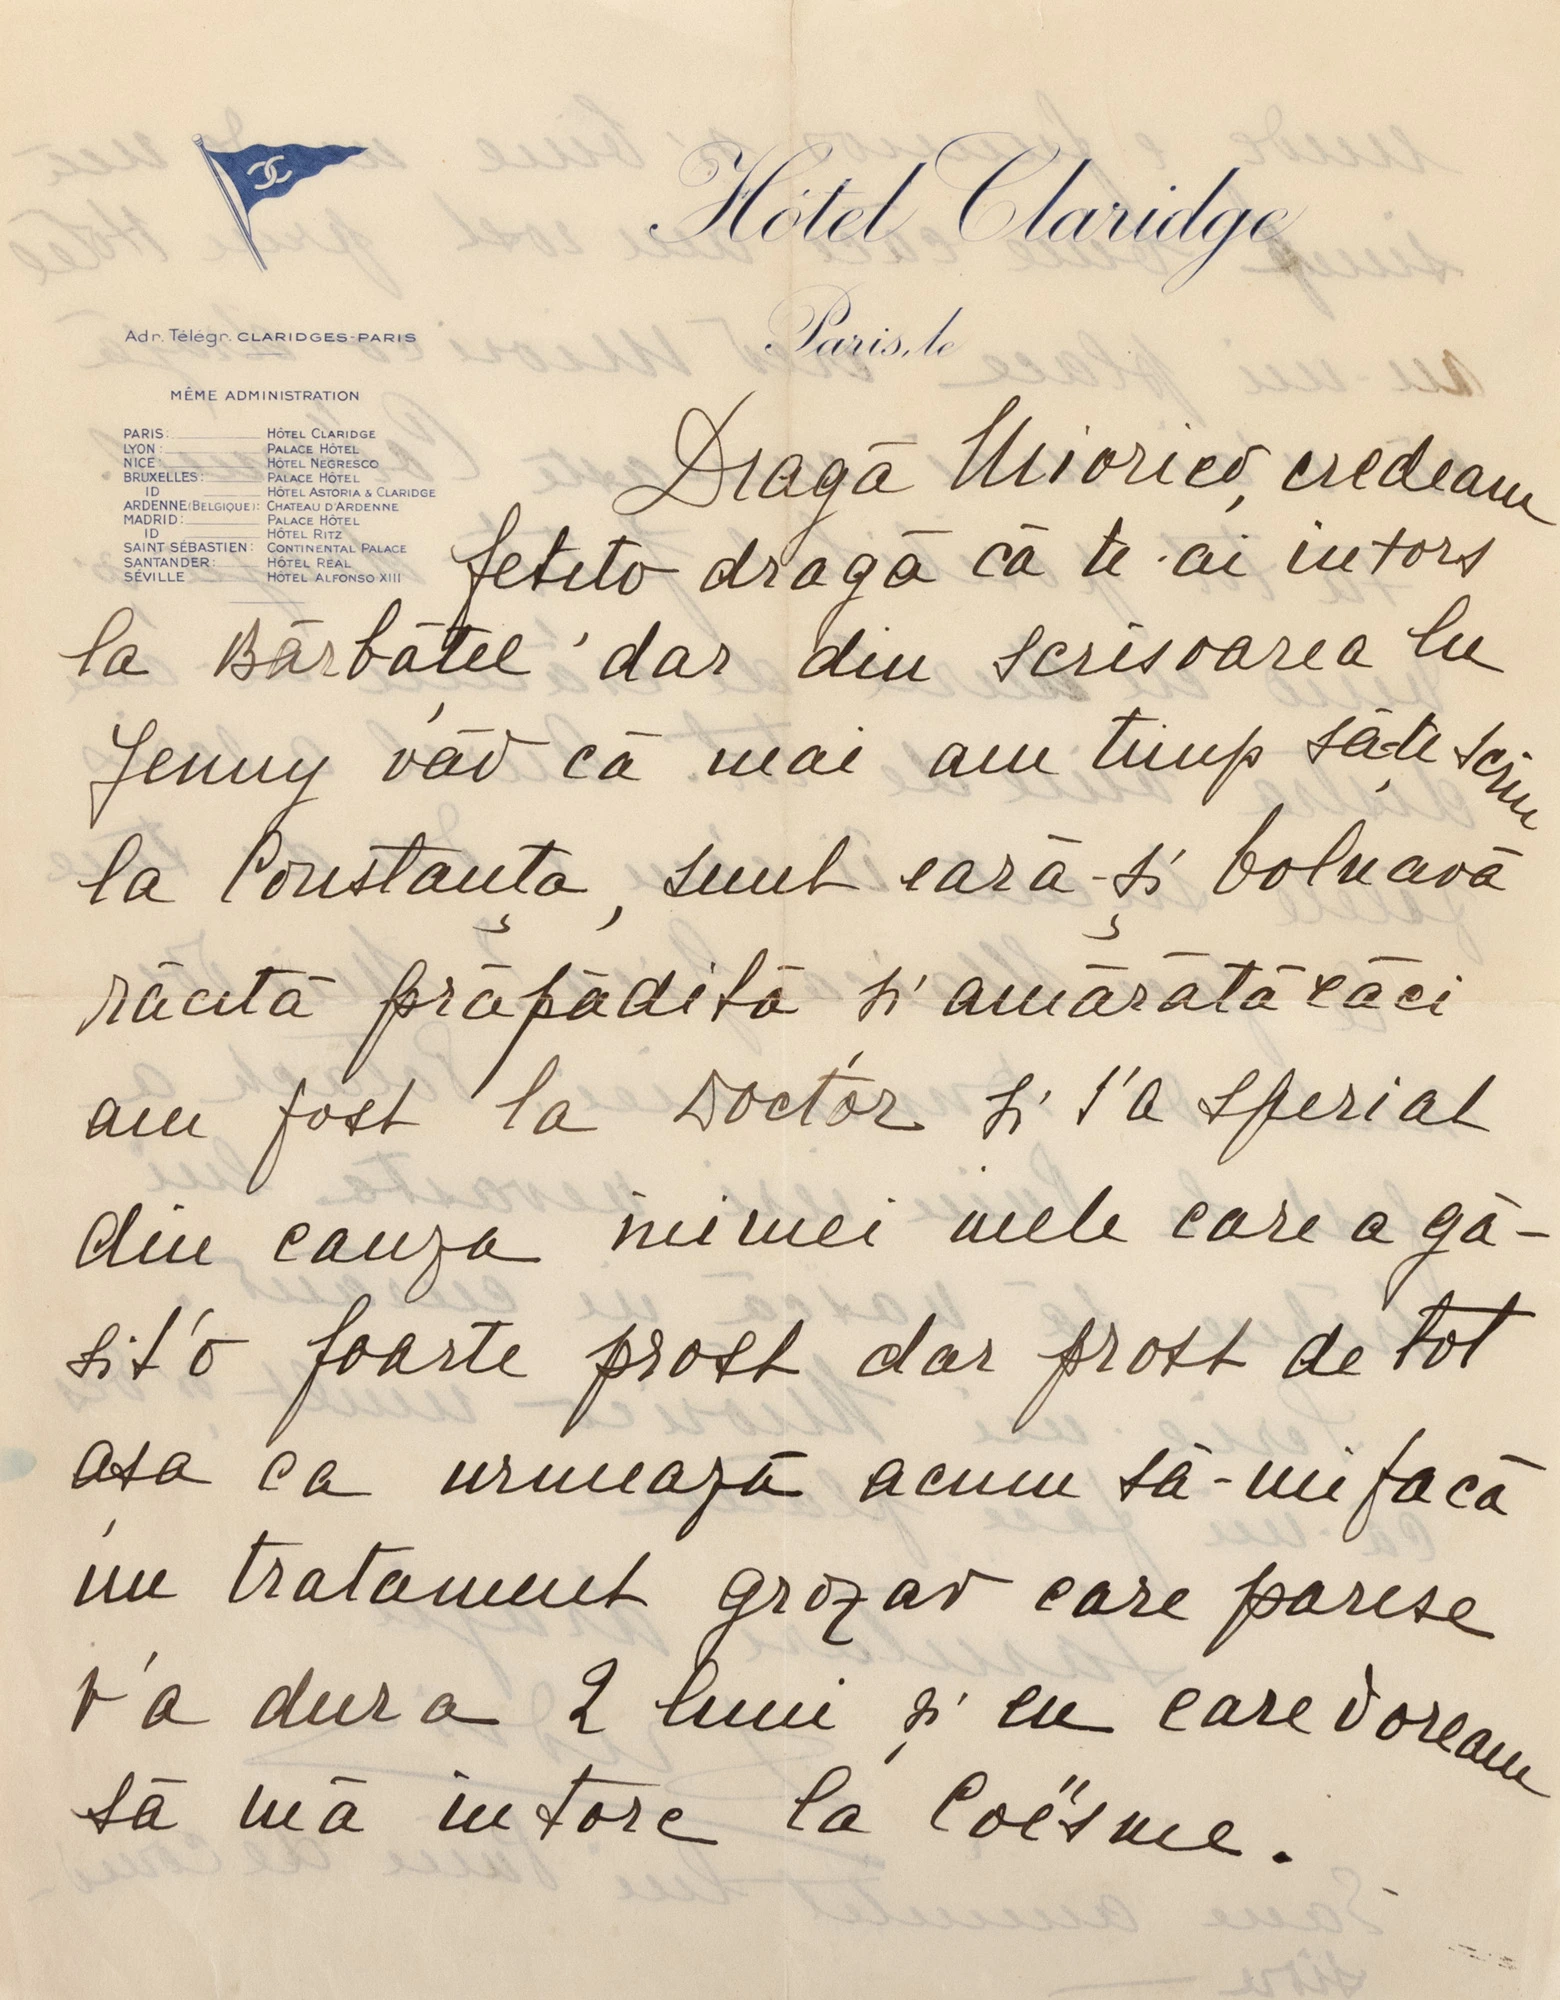 Hôtel Claridge
Paris, le
Adr. Télégr. CLARIDGES-PARIS
MÊME ADMINISTRATION
PARIS: HÔTEL CLARIDGE
LYON: PALACE HÔTEL
NICE: HÔTEL NEGRESCO
BRUXELLES: PALACE HÔTEL
ID HÔTEL ASTORIA & CLARIDGE
ARDENNE (BELGIQUE): CHATEAU D'ARDENNE
MADRID: PALACE HÔTEL
ID HÔTEL RITZ
SAINT SÉBASTIEN: CONTINENTAL PALACE
SANTANDER: HÔTEL REAL
SÉVILLE HÔTEL ALFONSO XIII
Dragă Miorico, credeam
fetito dragă că te-ai intors
la Bărbățel dar din scrisoarea lu
Jenny văd că mai am timp să-ți scriu
la Constanța, sunt eară-și bolnavă
răcită prăpădită și amărâtă căci
am fost la Doctor și s'a speriat
din cauza inimei mele care a gă-
sit'o foarte prost dar prost de tot
asa ca urmează acum să-mi facă
un tratament grozav care parese
v'a dura 2 luni și eu care voream
să mă intorc la Coësme.